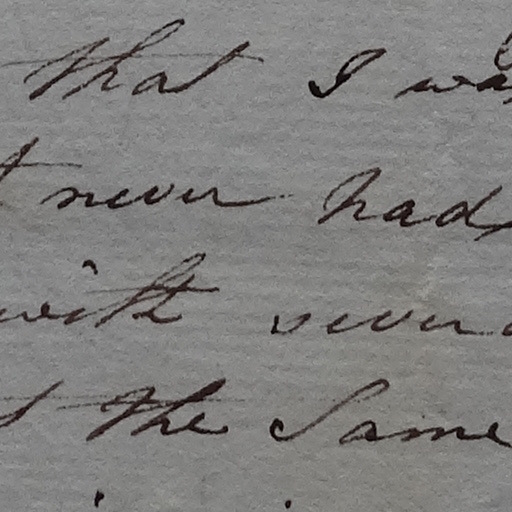 that I was
never had
with severa
the Same